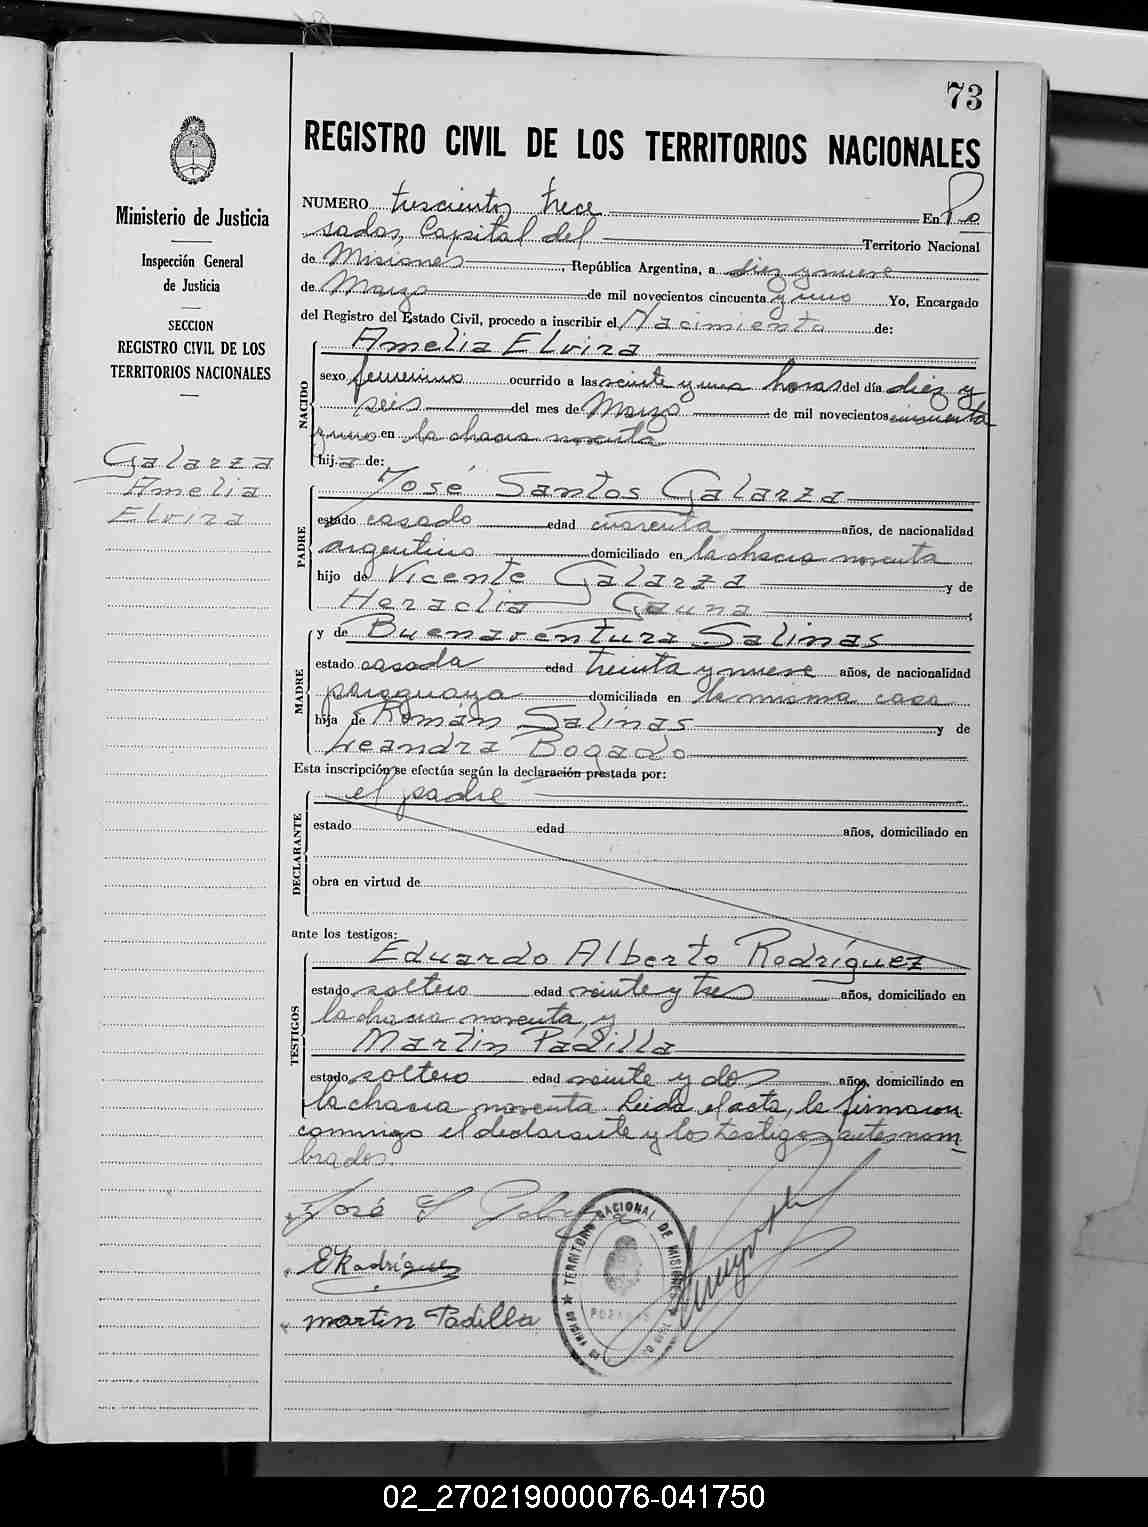 73
REGISTRO CIVIL DE LOS TERRITORIOS NACIONALES
Ministerio de Justicia
Inspección General
de Justicia
SECCION
REGISTRO CIVIL DE LOS
TERRITORIOS NACIONALES
Galarza
Amelia
Elvira
NUMERO trescientos trece En Po
sadas, Capital del Territorio Nacional
de Misiones, República Argentina, a diez y nueve
de Marzo de mil novecientos cincuenta y uno Yo, Encargado
del Registro del Estado Civil, procedo a inscribir el Nacimiento de:
NACIDO
Amelia Elvira
sexo femenino ocurrido a las veinte y una horas del día diez y
seis del mes de Marzo de mil novecientos cincuenta
y uno en la chacra noventa
hija de:
PADRE
José Santos Galarza
estado casado edad cuarenta años, de nacionalidad
argentino domiciliado en la chacra noventa
hijo de Vicente Galarza y de
Heraclia Gauna;
MADRE
y de Buenaventura Salinas
estado casada edad treinta y nueve años, de nacionalidad
paraguaya domiciliada en la misma casa
hija de Román Salinas y de
Leandra Bogado
Esta inscripción se efectúa según la declaración prestada por:
DECLARANTE
el padre
estado edad años, domiciliado en
obra en virtud de
ante los testigos:
TESTIGOS
Eduardo Alberto Rodríguez
estado soltero edad veinte y tres años, domiciliado en
la chacra noventa, y
Martin Padilla
estado soltero edad veinte y dos años, domiciliado en
la chacra noventa. Leida el acta, la firmaron
conmigo el declarante y los testigos antes nom-
brados.
José S Galarza
E Rodríguez
martin Padilla
TERRITORIO NACIONAL DE MISIONES
POSADAS
02_270219000076-041750